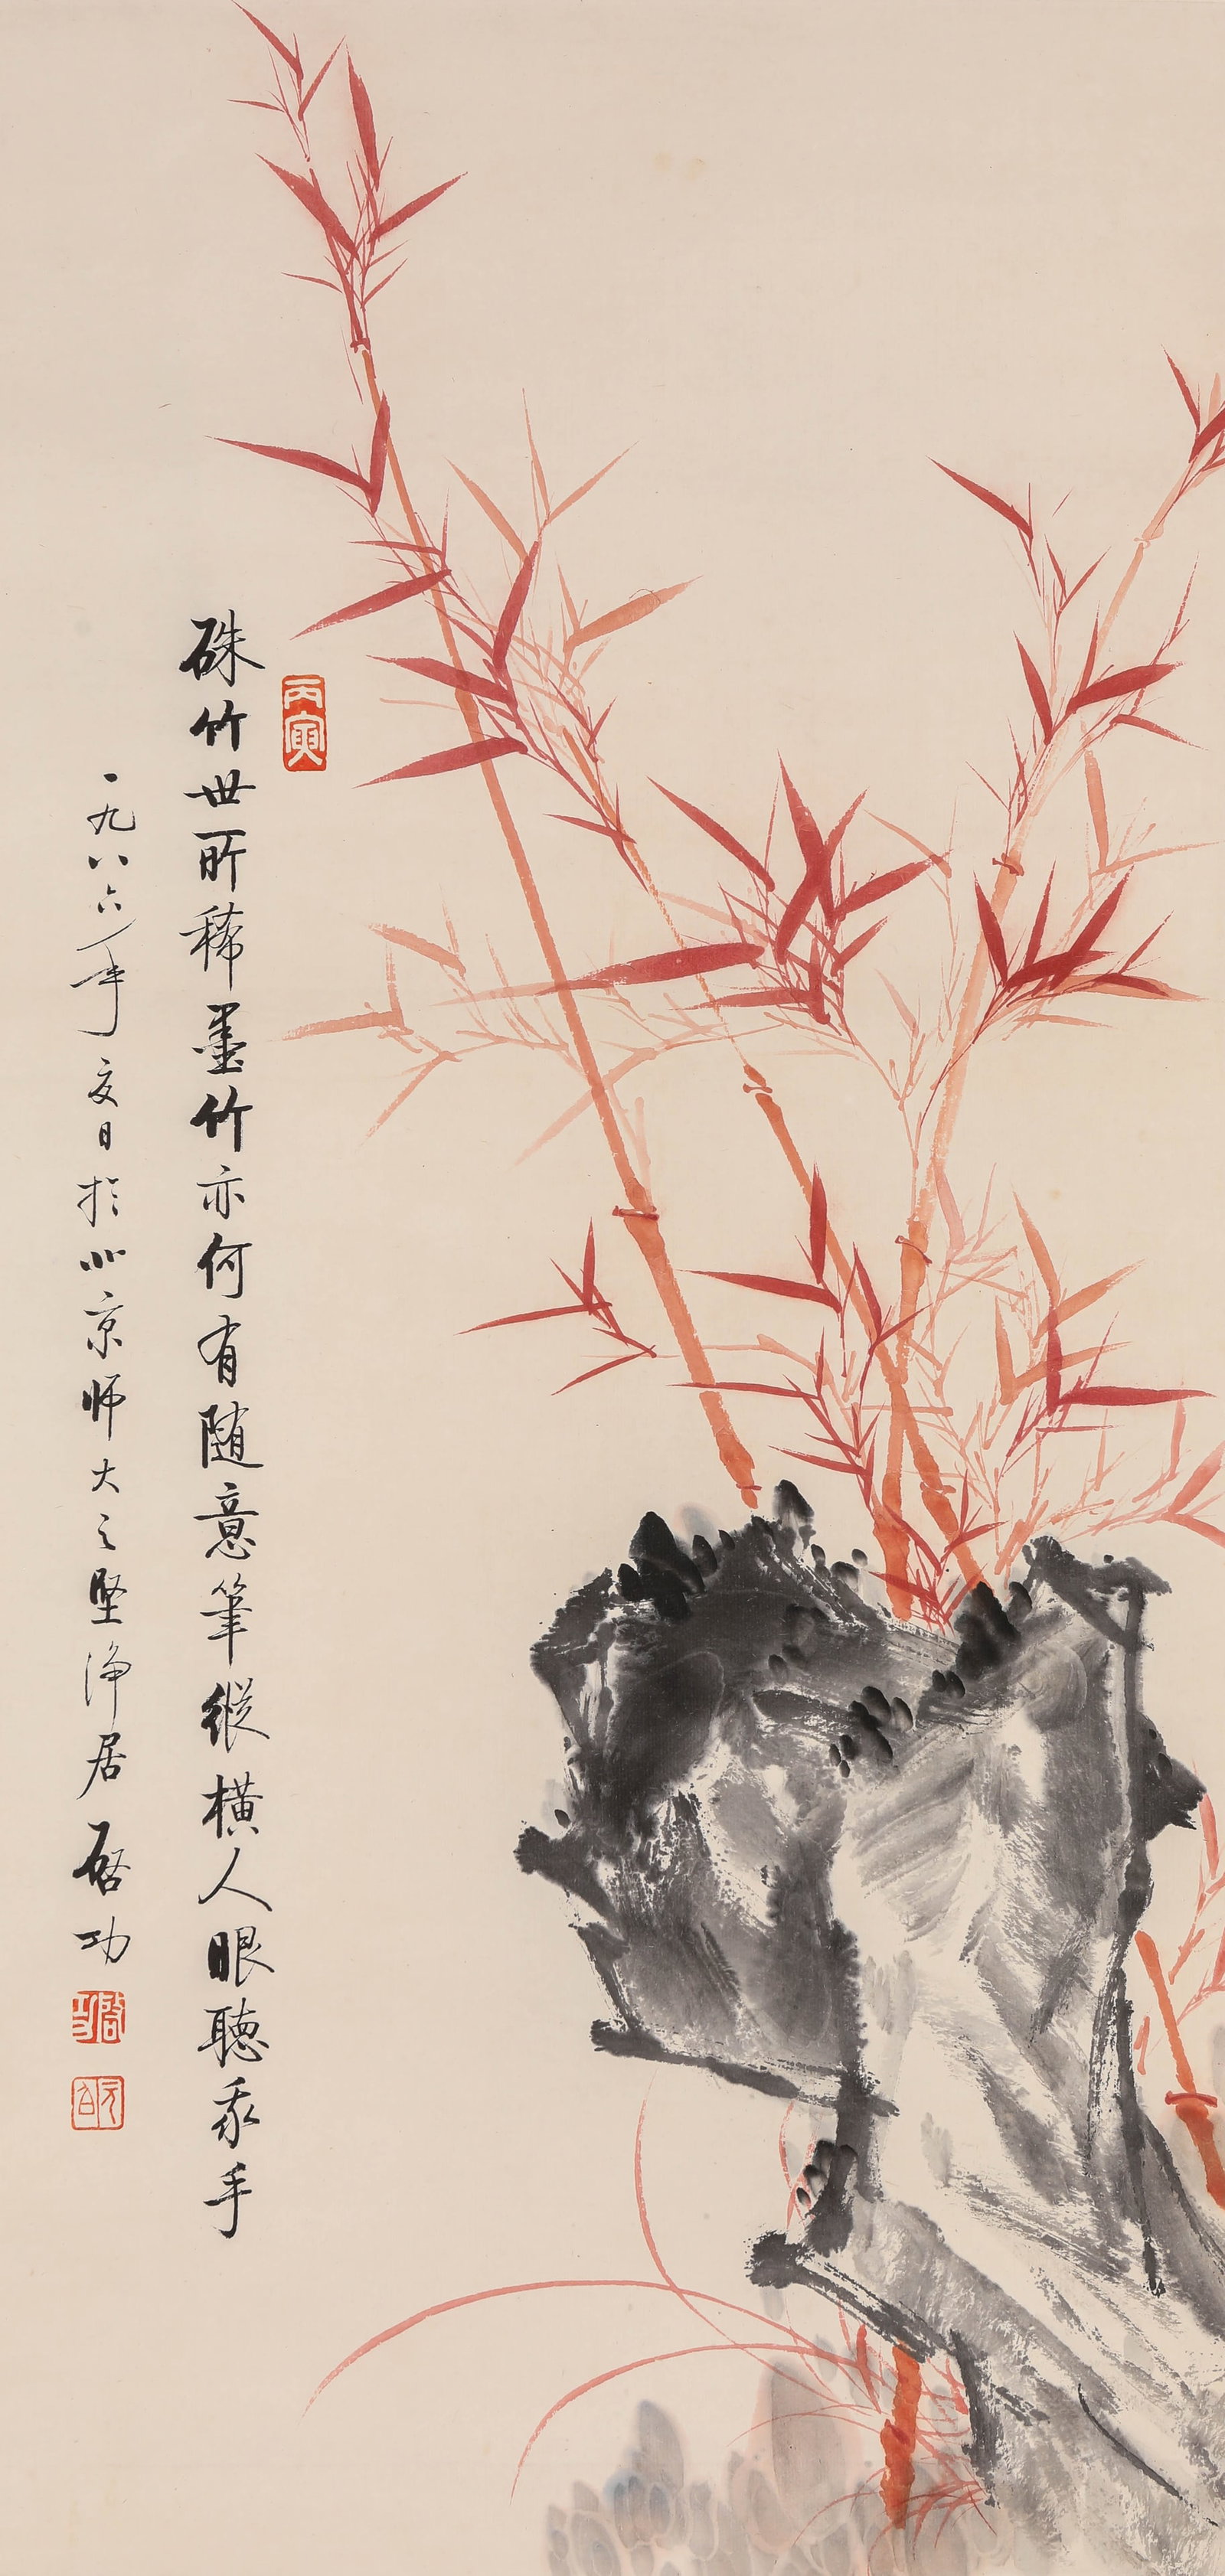 硃竹世所稀墨竹亦何有随意筆縱橫人眼聽我手
一九八六年夏日於北京师大之堅淨居启功
丙寅
啟功
元白